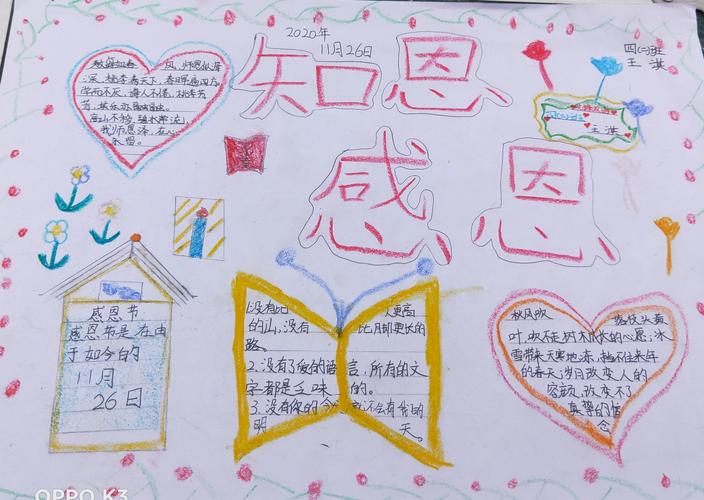 2020年
11月26日
四(二)班
王淇
知恩
感恩
风,师恩似海
深,桃李满天下,春晖遍四方,
学而不厌,诲人不倦,桃李芬
芳,其乐亦融融。
王淇
感恩节
感恩节是在由
于如今的
11月
26日
1.没有比人更高
的山,没有比月却更长的
路。
2.没有了爱的语言,所有的文
字都是乏味的。
3.没有你的今就不会有我的
明天。
秋风吹落枝头黄
叶,吹不走树木成长的心愿;冰
雪带来天寒地冻,挡不住来年
的春天;岁月改变人的
容颜,改变不了
真挚的信
念
OPPO K3